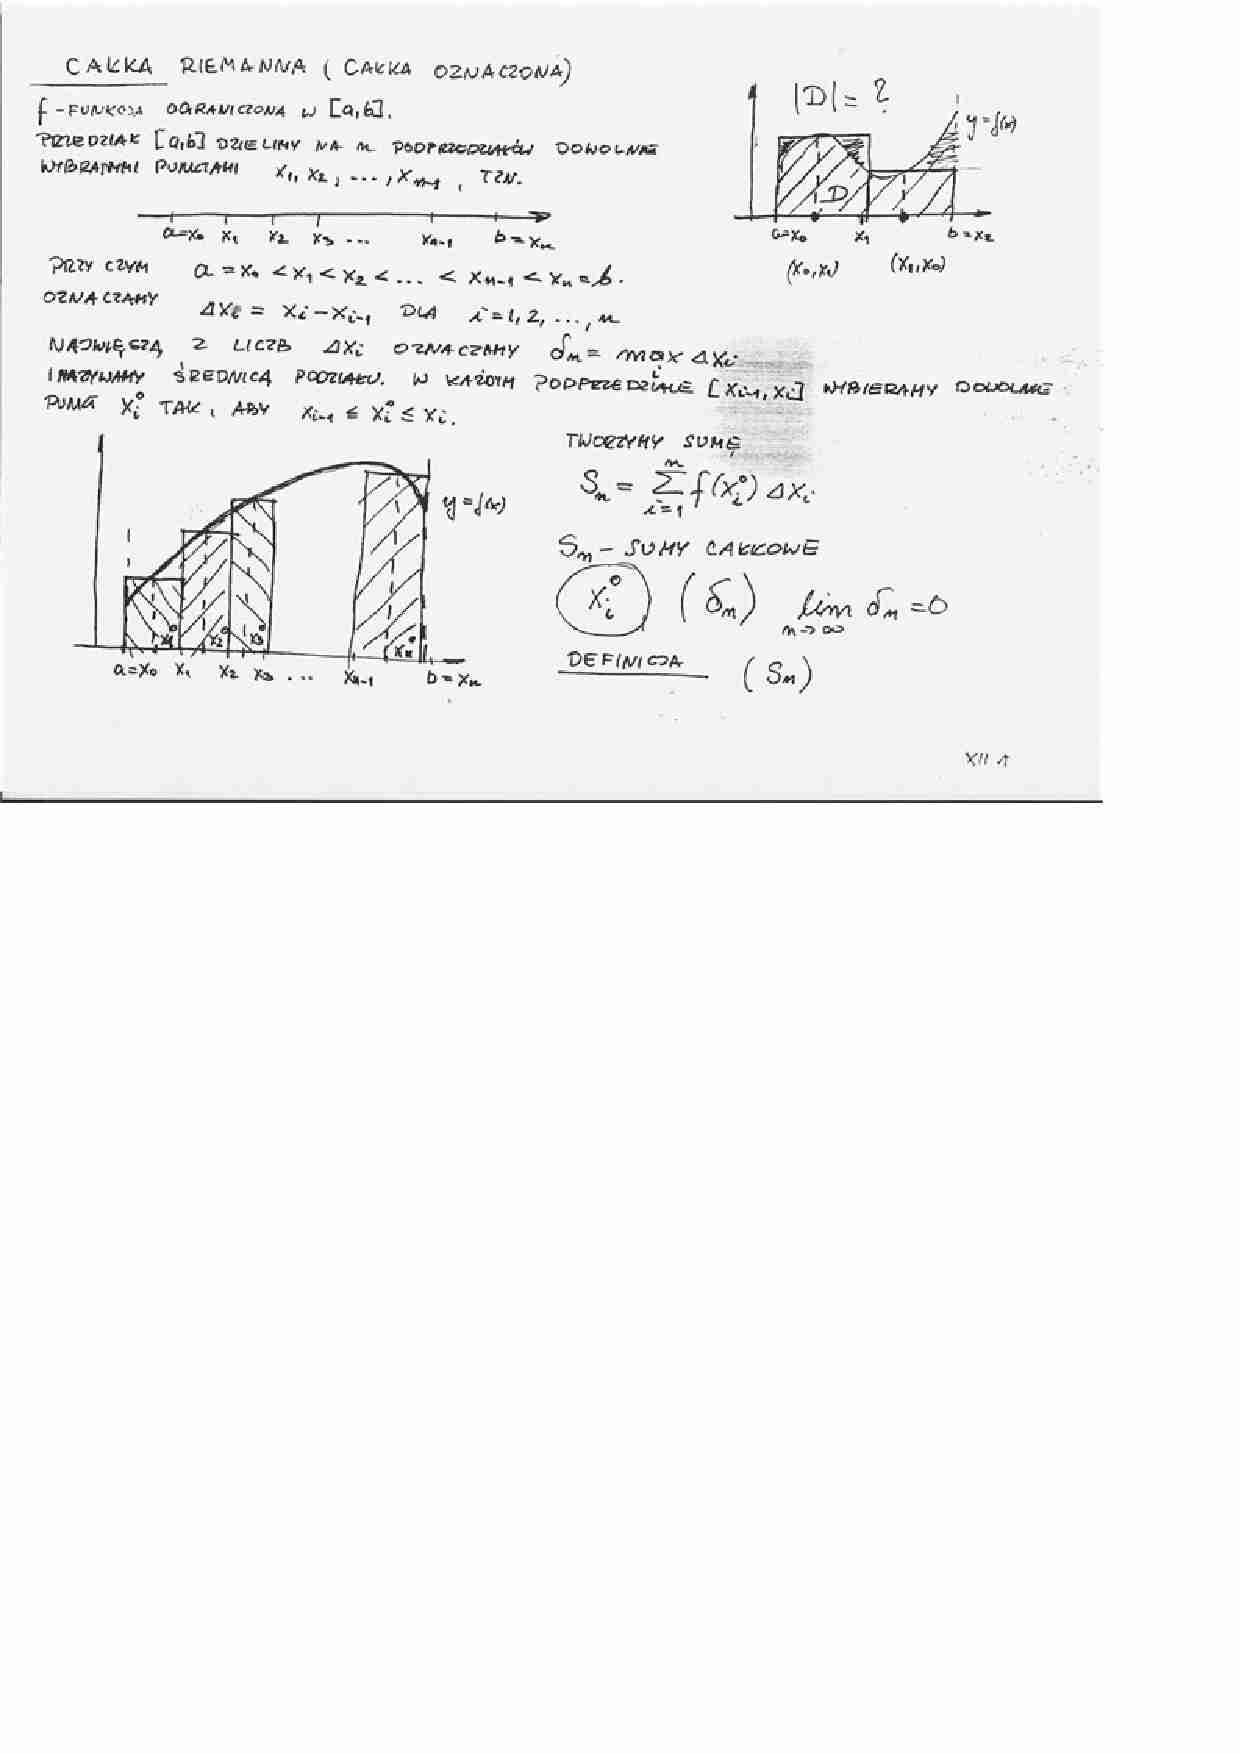 CAŁKA RIEMANNA ( CAŁKA OZNACZONA)
f - FUNKCJA OGRANICZONA W [a,b].
PRZEDZIAŁ [a,b] DZIELIMY NA n PODPRZEDZIAŁÓW DOWOLNIE
WYBRANYMI PUNKTAMI x₁, x₂, ..., xₙ₋₁, TZN.
a=x₀ x₁ x₂ x₃ ... xₙ₋₁ b=xₙ
|D| = ?
y=f(x)
D
a=x₀ x₁ b=x₂
(x₀,x₁) (x₁,x₀)
PRZY CZYM a = x₀ < x₁ < x₂ < ... < xₙ₋₁ < xₙ = b.
OZNACZAMY Δxᵢ = xᵢ - xᵢ₋₁ DLA i = 1, 2, ..., n
NAJWIĘKSZĄ Z LICZB Δxᵢ OZNACZAMY δₙ = max Δxᵢ
i
I NAZYWAMY ŚREDNICĄ PODZIAŁU. W KAŻDYM PODPRZEDZIALE [xᵢ₋₁, xᵢ] WYBIERAMY DOWOLNIE
PUNKT xᵢ° TAK, ABY xᵢ₋₁ ≤ xᵢ° ≤ xᵢ.
y=f(x)
x₁° x₂° x₃° xₙ°
a=x₀ x₁ x₂ x₃ ... xₙ₋₁ b=xₙ
TWORZYMY SUMĘ
Sₙ = Σᵢ₌₁ⁿ f(xᵢ°) Δxᵢ
Sₙ - SUMY CAŁKOWE
xᵢ° (δₙ) lim δₙ = 0
n→∞
DEFINICJA (Sₙ)
XII 1